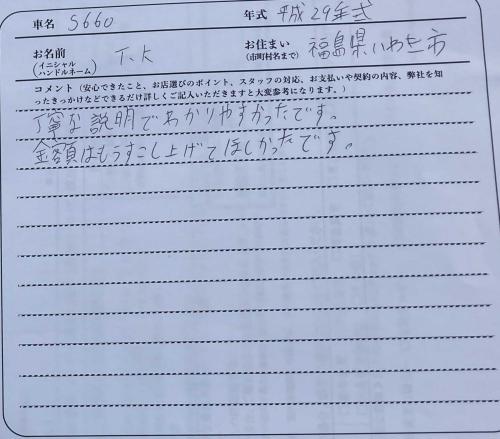 車名 S660 年式 平成29年式
お名前 (イニシャル ハンドルネーム) T.K お住まい (市町村名まで) 福島県いわき市
コメント（安心できたこと、お店選びのポイント、スタッフの対応、お支払いや契約の内容、弊社を知
ったきっかけなどできるだけ詳しくご記入いただきますと大変参考になります。）
丁寧な説明でわかりやすかったです。
金額はもうすこし上げてほしかったです。